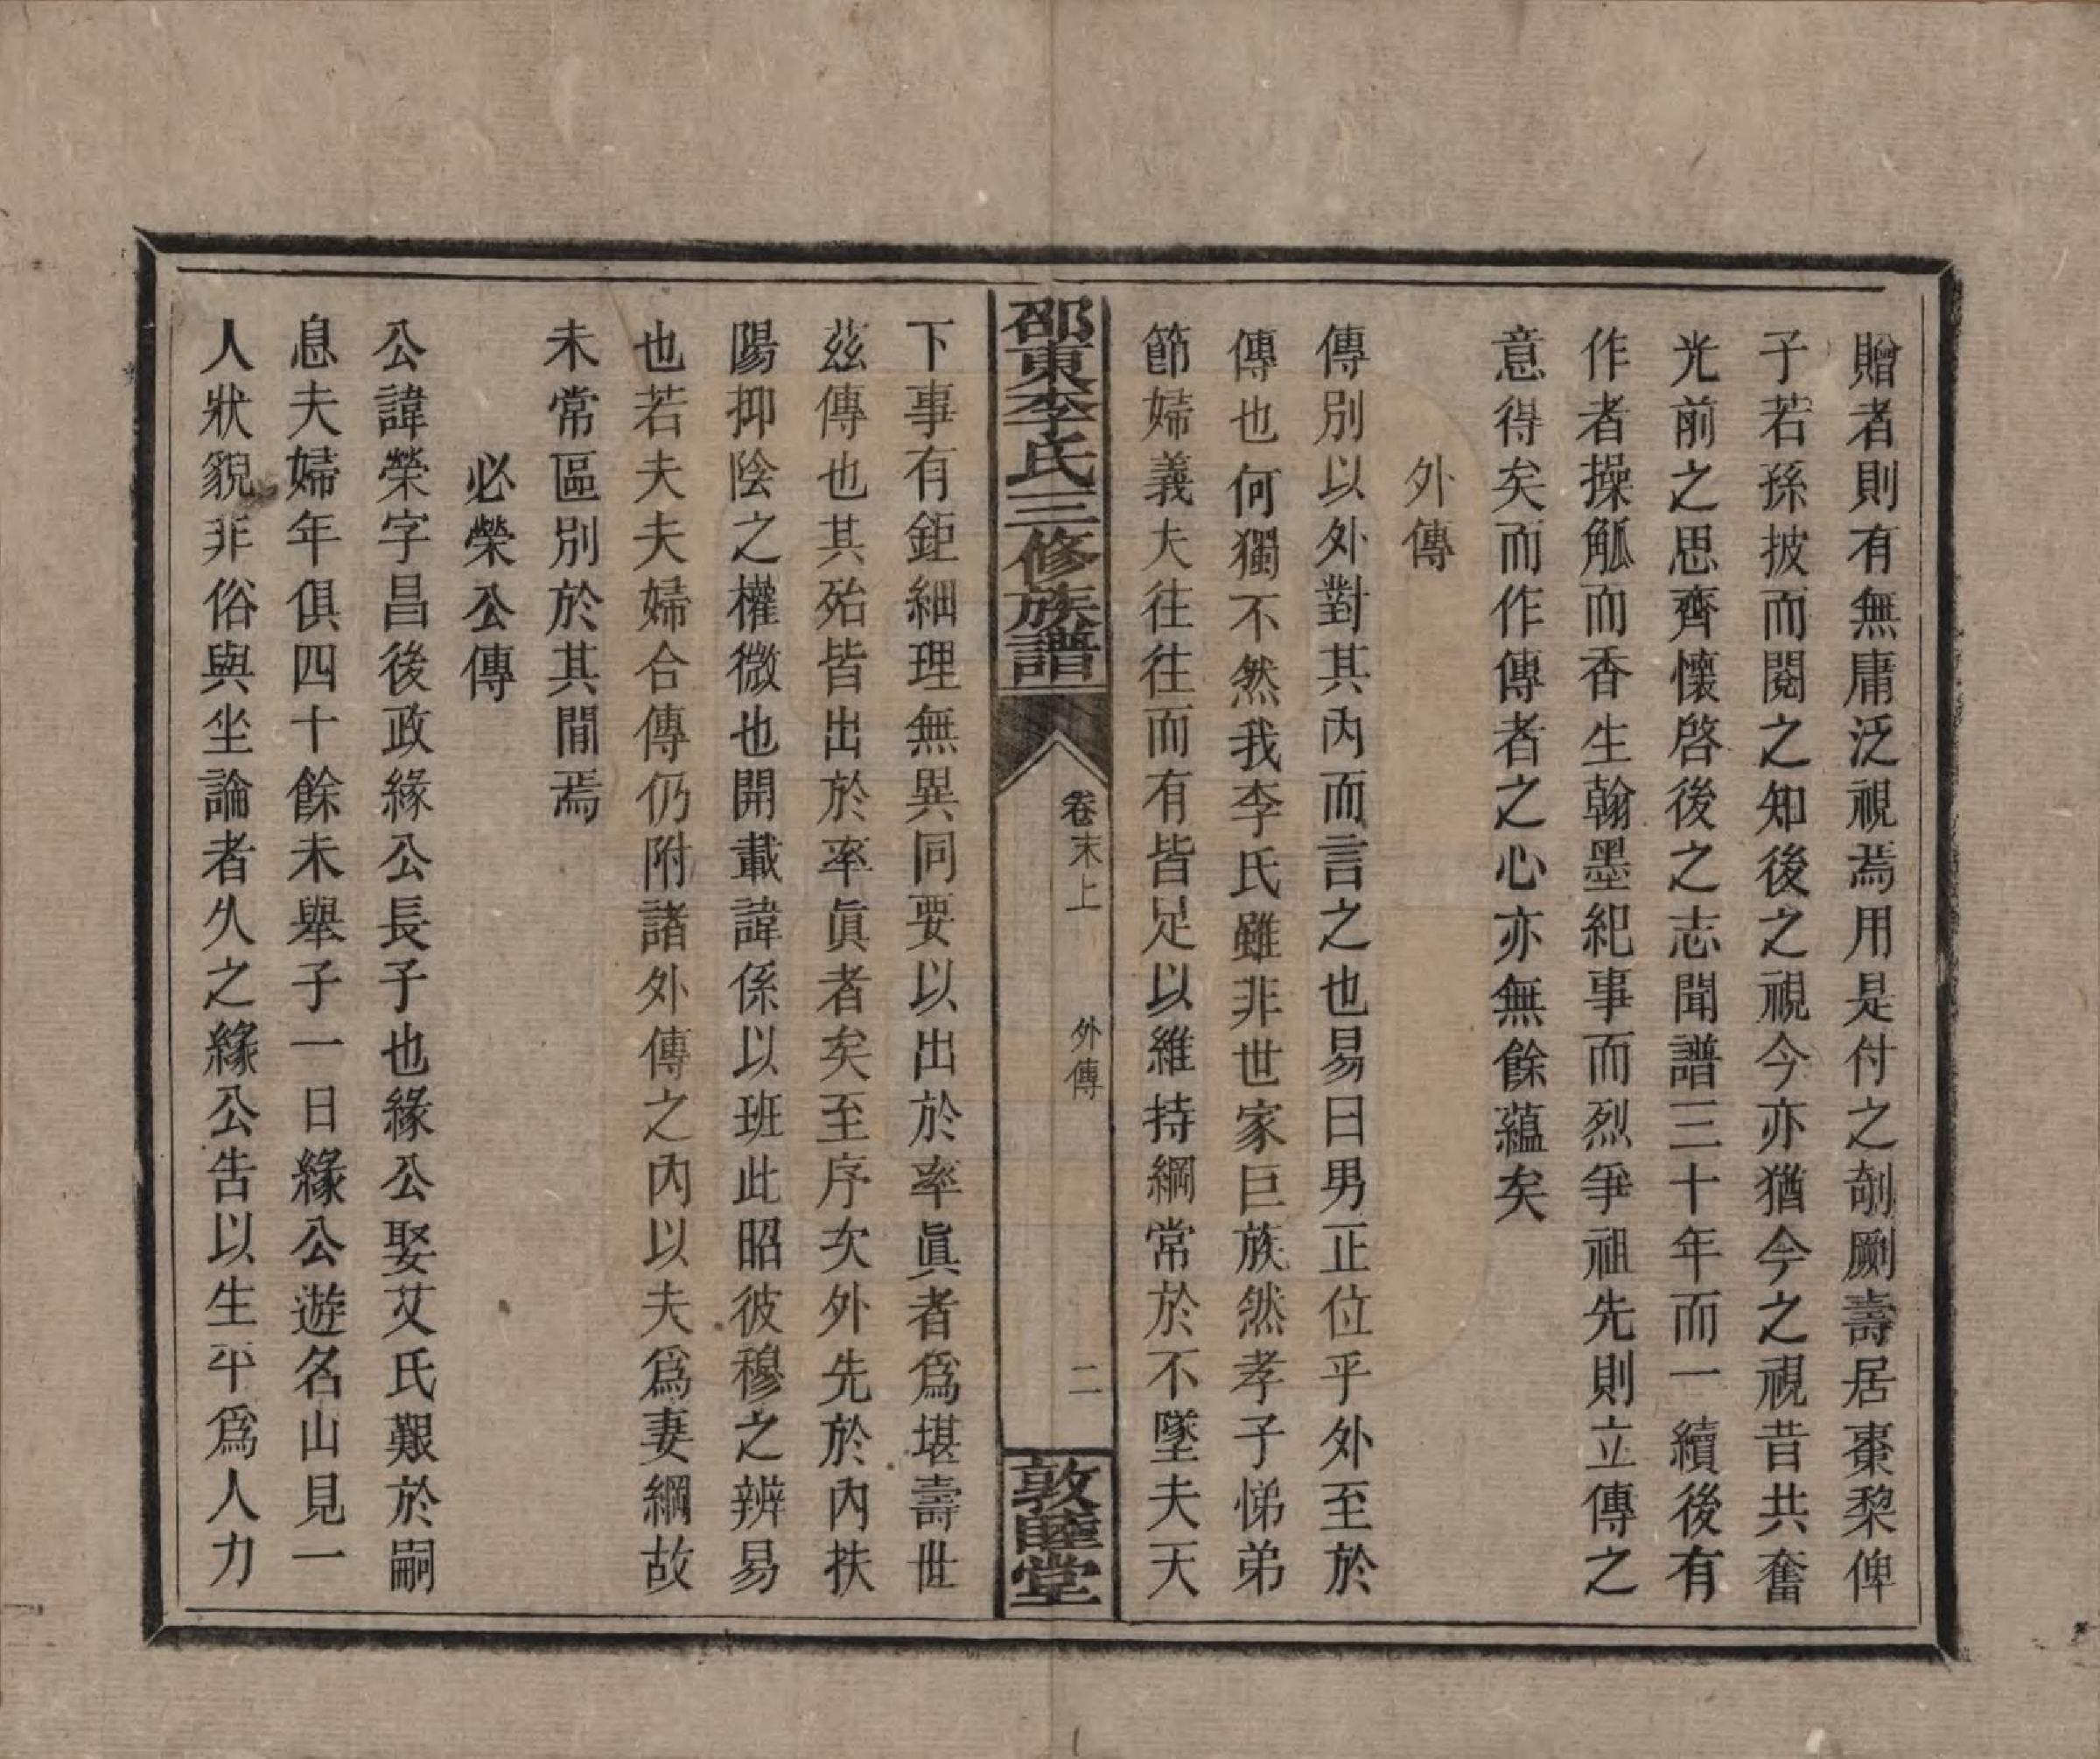 贈者則有無庸泛視焉用是付之剞劂壽居棗黎俾
子若孫披而閱之知後之視今亦猶今之視昔共奮
光前之思齊懷啓後之志聞譜三十年而一續後有
作者操觚而香生翰墨紀事而烈爭祖先則立傳之
意得矣而作傳者之心亦無餘蘊矣
外傳
傳別以外對其內而言之也易曰男正位乎外至於
傳也何獨不然我李氏雖非世家巨族然孝子悌弟
節婦義夫往往而有皆足以維持綱常於不墜夫天
邵東李氏三修族譜
卷末上 外傳 二
敦睦堂
下事有鉅細理無異同要以出於率眞者爲堪壽世
茲傳也其殆皆出於率眞者矣至序次外先於內扶
陽抑陰之權微也開載諱係以班此昭彼穆之辨易
也若夫夫婦合傳仍附諸外傳之內以夫爲妻綱故
未常區別於其間焉
必榮公傳
公諱榮字昌後政緣公長子也緣公娶艾氏艱於嗣
息夫婦年俱四十餘未舉子一日緣公遊名山見一
人狀貌非俗與坐論者久之緣公告以生平爲人力